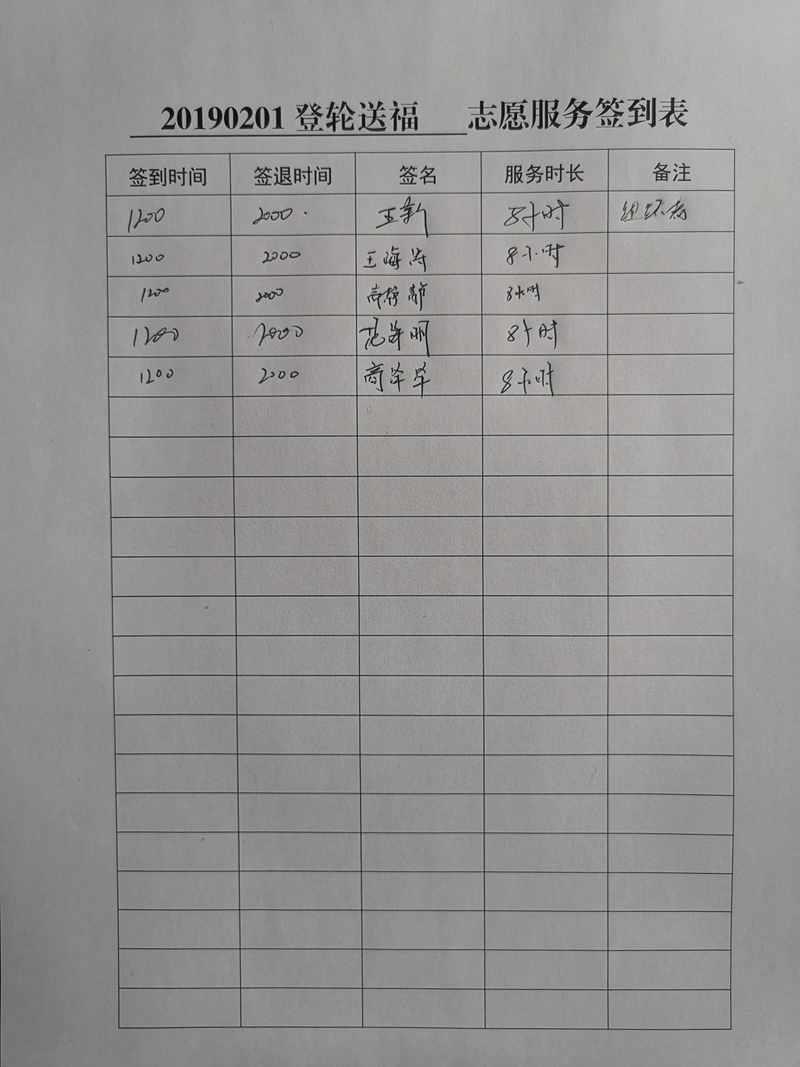 20190201登轮送福 志愿服务签到表
签到时间 签退时间 签名 服务时长 备注
1200 2000 王新 8小时
1200 2000 王海涛 8小时
1200 2000 8小时
1200 2000 8小时
1200 2000 商毕毕 8小时